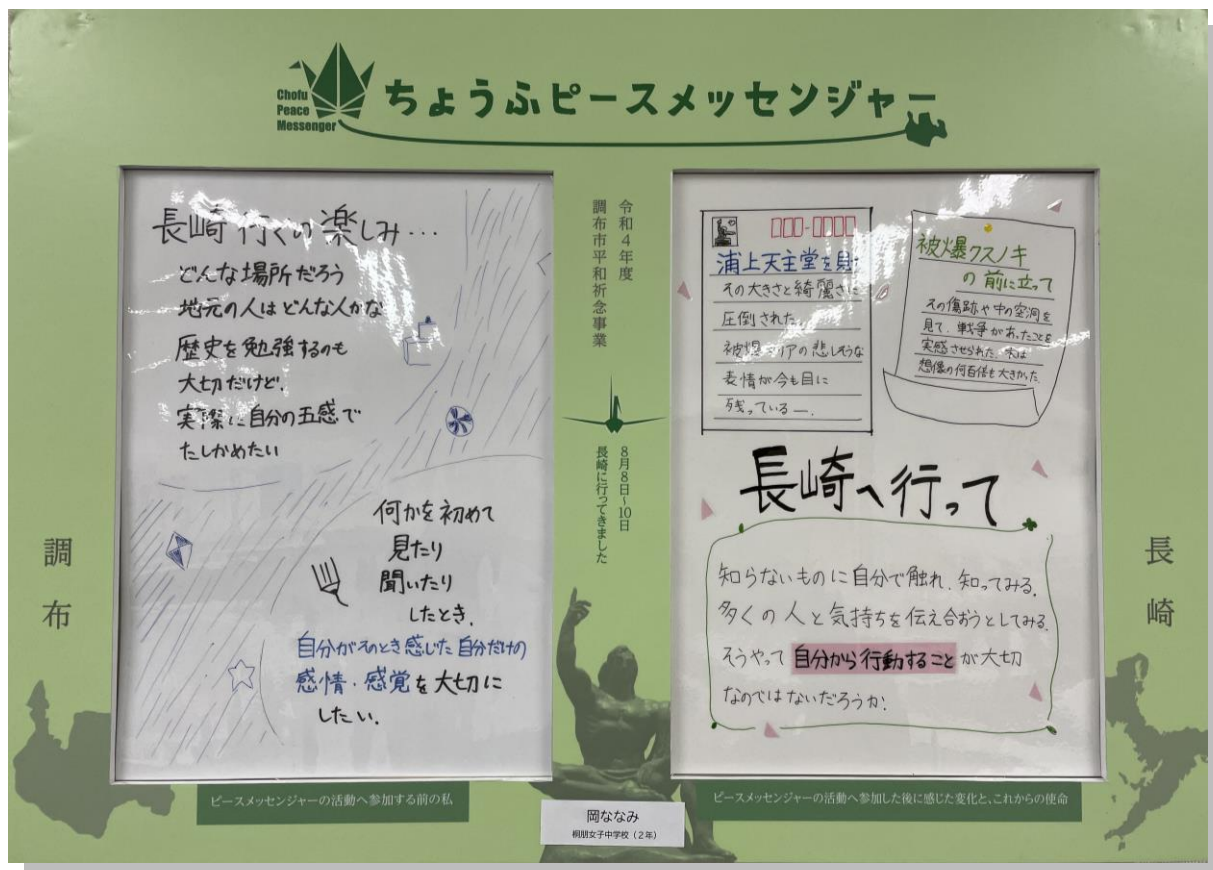 Chofu
Peace
Messenger
ちょうふピースメッセンジャー
令和4年度
調布市平和祈念事業
8月8日~10日
長崎に行ってきました
調布
長崎
長崎行くの楽しみ…
どんな場所だろう
地元の人はどんな人かな
歴史を勉強するのも
大切だけど、
実際に自分の五感で
たしかめたい
何かを初めて
見たり
聞いたり
したとき、
自分がそのとき感じた自分だけの
感情・感覚を大切に
したい。
ピースメッセンジャーの活動へ参加する前の私
浦上天主堂を見て
その大きさと綺麗さに
圧倒された。
被爆マリアの悲しそうな
表情が今も目に
残っている―。
被爆クスノキ
の前に立って
その傷跡や中の空洞を
見て、戦争があったことを
実感させられた。木は
想像の何百倍も大きかった。
長崎へ行って
知らないものに自分で触れ、知ってみる。
多くの人と気持ちを伝え合おうとしてみる。
そうやって自分から行動することが大切
なのではないだろうか?
ピースメッセンジャーの活動へ参加した後に感じた変化と、これからの使命
岡ななみ
桐朋女子中学校（2年）